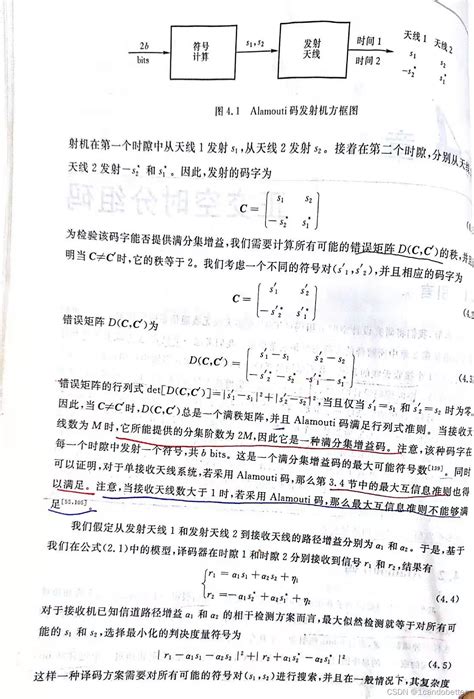 2b
bits
符号
计算
s₁,s₂
发射
天线
时间 1
时间 2
天线 1 天线 2
s₁ s₂
-s₂* s₁*
图 4.1 Alamouti 码发射机方框图
射机在第一个时隙中从天线 1 发射 s₁,从天线 2 发射 s₂。接着在第二个时隙,分别从天线
天线 2 发射-s₂* 和 s₁*。因此,发射的码字为
C = [ s₁ s₂
-s₂* s₁* ]
为检验该码字能否提供满分集增益,我们需要计算所有可能的错误矩阵 D(C,C′)的秩,并
明当 C≠C′时,它的秩等于 2。我们考虑一个不同的符号对(s′₁,s′₂),并且相应的码字为
C = [ s′₁ s′₂
-s′₂* s′₁* ]
(4.
错误矩阵 D(C,C′)为
D(C,C′) = [ s′₁ - s₁ s′₂ - s₂
(4.
错误矩阵的行列式 det[D(C,C′)]=|s′₁-s₁|²+|s′₂-s₂|²,当且仅当 s′₁=s₁ 和 s′₂=s₂ 时为零。
因此,当 C≠C′时,D(C,C′)总是一个满秩矩阵,并且 Alamouti 码满足行列式准则。当接收天
线数为 M 时,它所能提供的分集阶数为 2M,因此它是一种满分集增益码。注意,该种码字在
每一个时隙中发射一个符号,共 b bits。这是一个满分集增益码的最大可能符号数[139]。同时
可以证明,对于单接收天线系统,若采用 Alamouti 码,那么第 3.4 节中的最大互信息准则也得
以满足。注意,当接收天线数大于 1 时,若采用 Alamouti 码,那么最大互信息准则不能够满
足
我们假定从发射天线 1 和发射天线 2 到接收天线的路径增益分别为 α₁ 和 α₂。于是,基于
我们在公式(2.1)中的模型,译码器在时隙 1 和时隙 2 分别接收到信号 r₁ 和 r₂,结果有
{ r₁ = α₁s₁ + α₂s₂ + η₁
r₂ = -α₁s₂* + α₂s₁* + η₂
(4.4)
对于接收机已知信道路径增益 α₁ 和 α₂ 的相干检测方案而言,最大似然检测就等于对所有可
能的 s₁ 和 s₂,选择最小化的判决度量符号为
| r₁ - α₁s₁ - α₂s₂ |² + | r₂ + α₁s₂* - α₂s₁* |²
(4.5)
这样一种译码方案需要对所有可能的符号对(s₁,s₂)进行搜索,并且在一般情况下,其复杂度